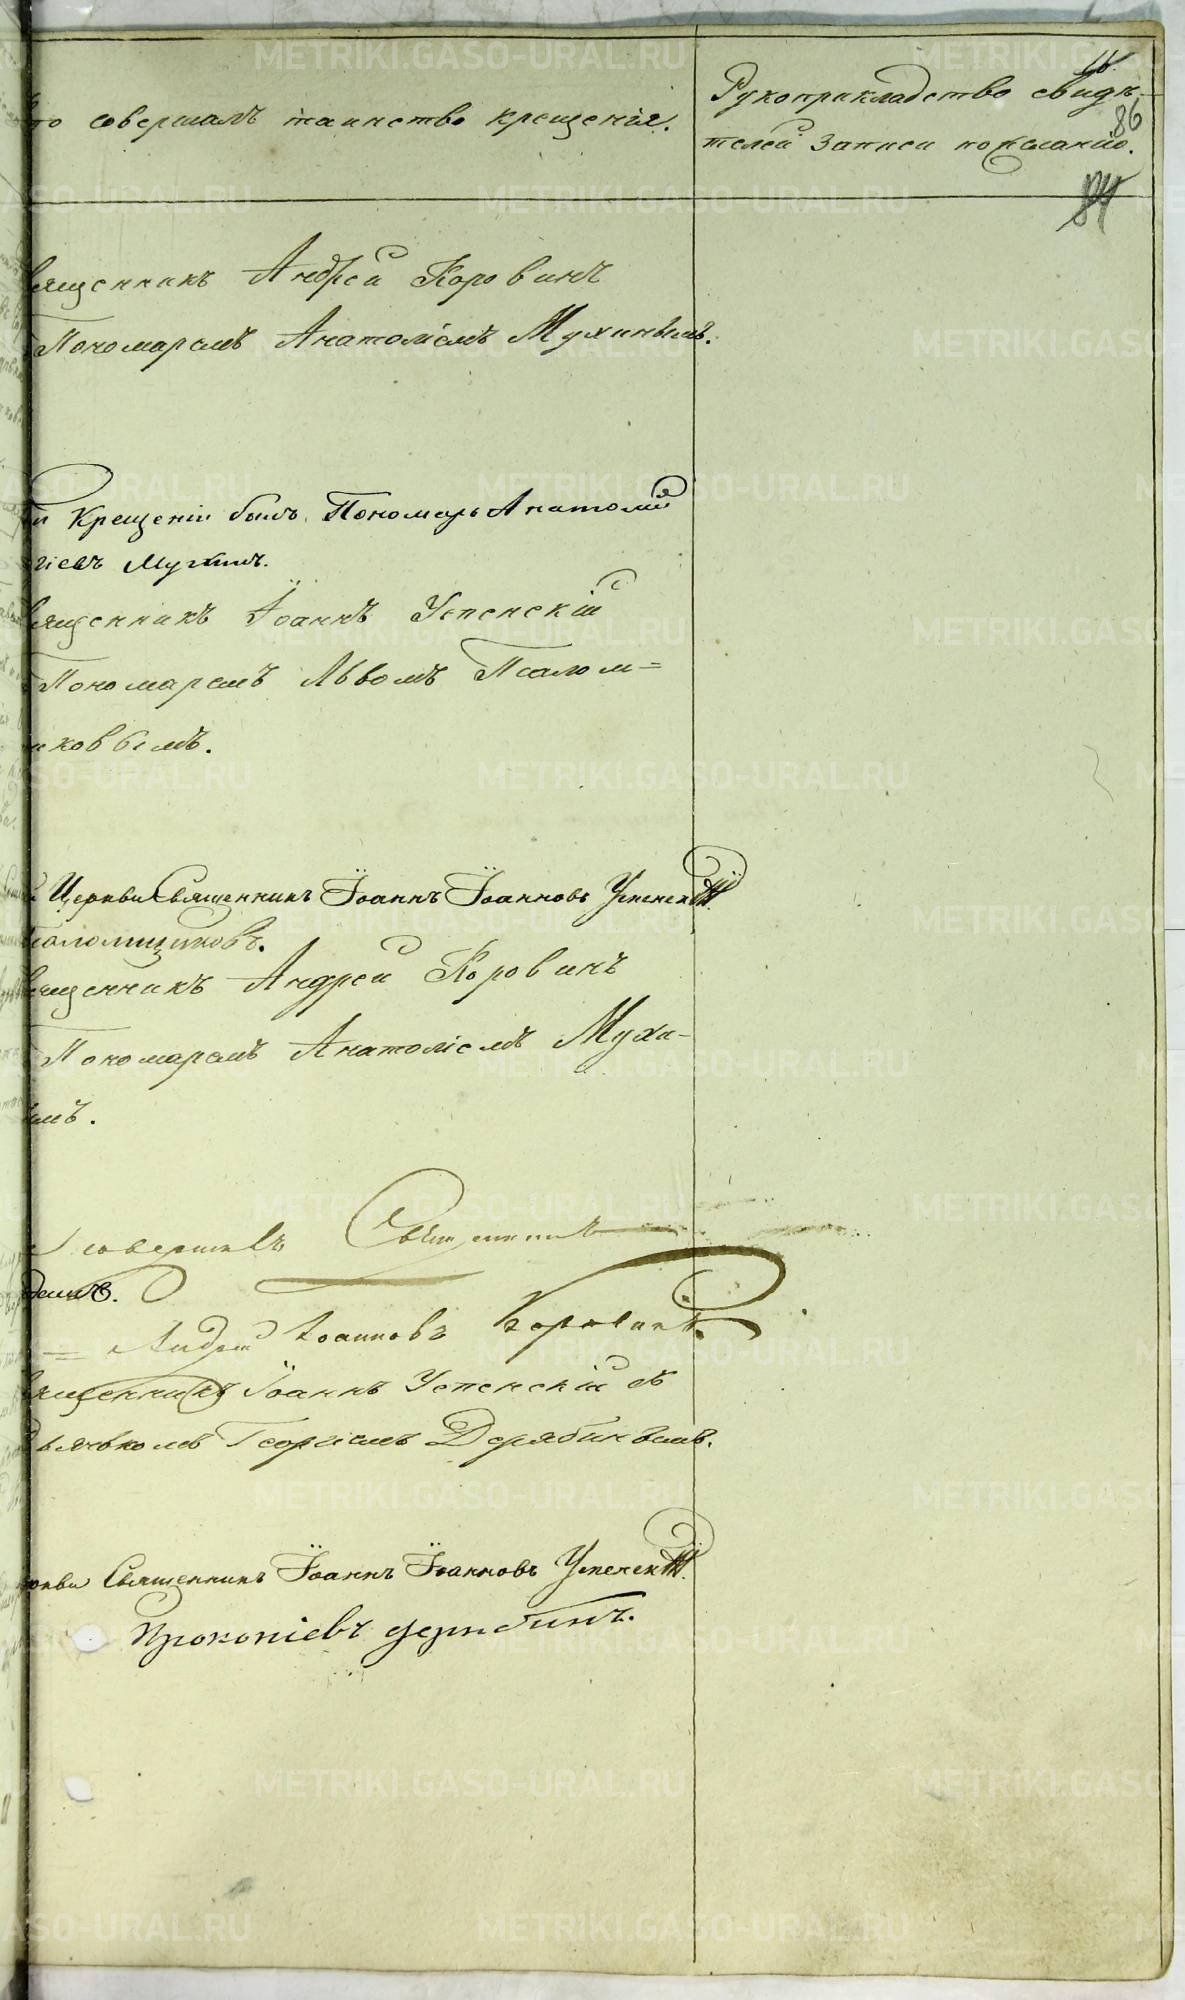 то совершалъ таинство крещенія.
Рукоприкладство свидѣ-
телей записи по желанію.
86
84
ященникъ Андрей Коровинъ
Пономаремъ Анатоліемъ Мухинымъ.
и Крещеніи былъ Пономарь Анатолій
гіевъ Мухинъ.
ященникъ Іоаннъ Успенскій
Пономаремъ Львомъ Псалом=
иковымъ.
Церкви Священникъ Іоаннъ Іоанновъ Успенскій.
саломщиковъ.
ященникъ Андрей Коровинъ
Пономаремъ Анатоліемъ Мухи-
ымъ.
совершилъ Священникъ
Андрей Іоанновъ Коровинъ.
ященникъ Іоаннъ Успенскій съ
ьячкомъ Георгіемъ Дерябинымъ.
ркви Священникъ Іоаннъ Іоанновъ Успенскій.
Прокопіевъ Дерябинъ.
METRIKI.GASO-URAL.RU